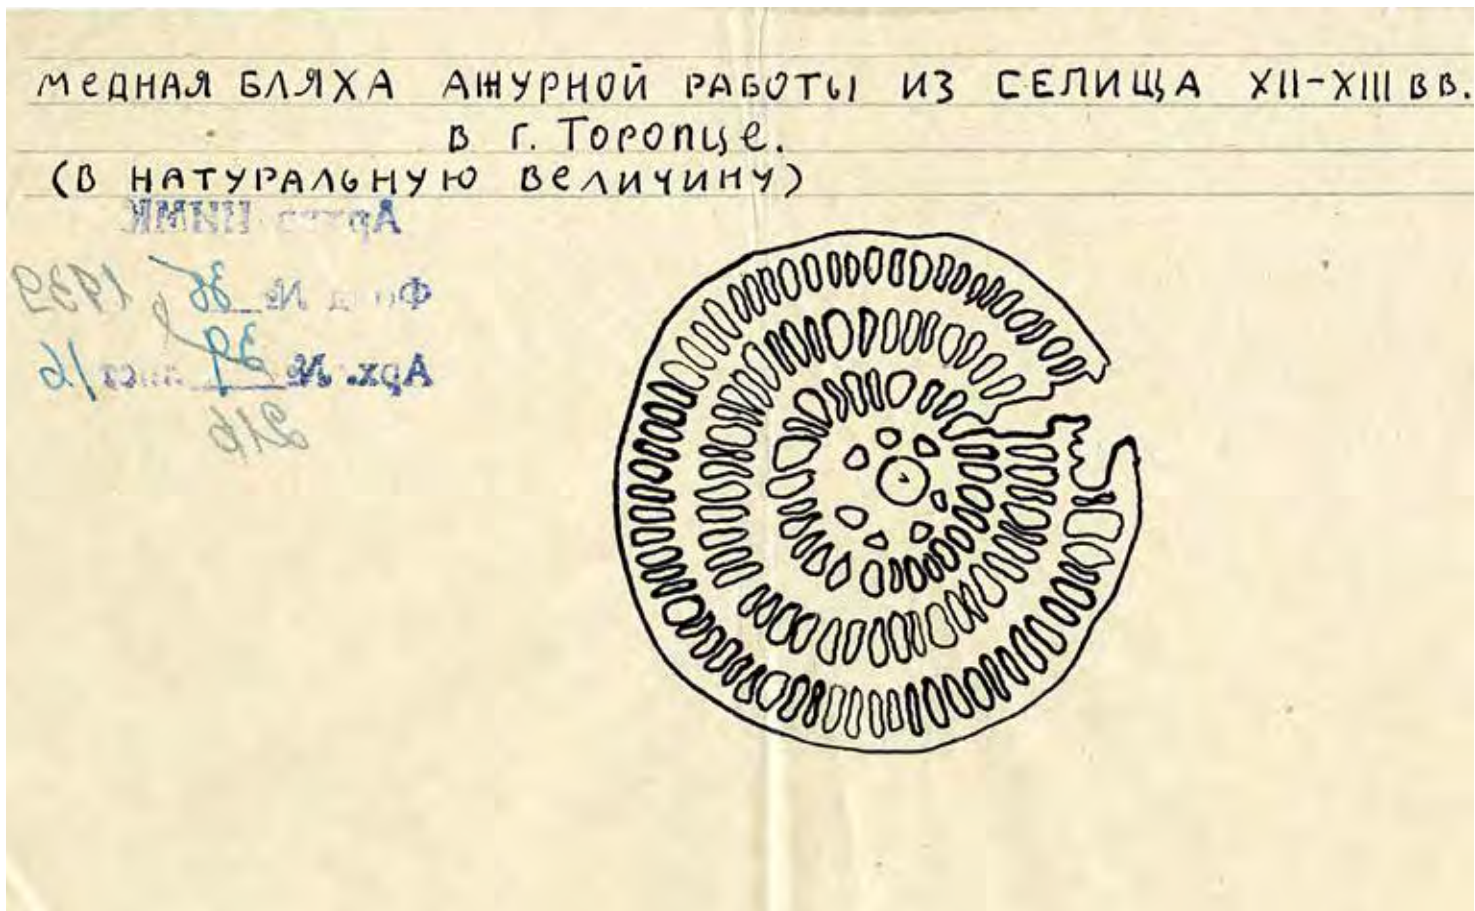 медная бляха ажурной работы из селища XII-XIII вв.
в г. Торопце.
(в натуральную величину)
Архив ИИМК
Фонд № 36 1939
Арх. № 39 лист 16